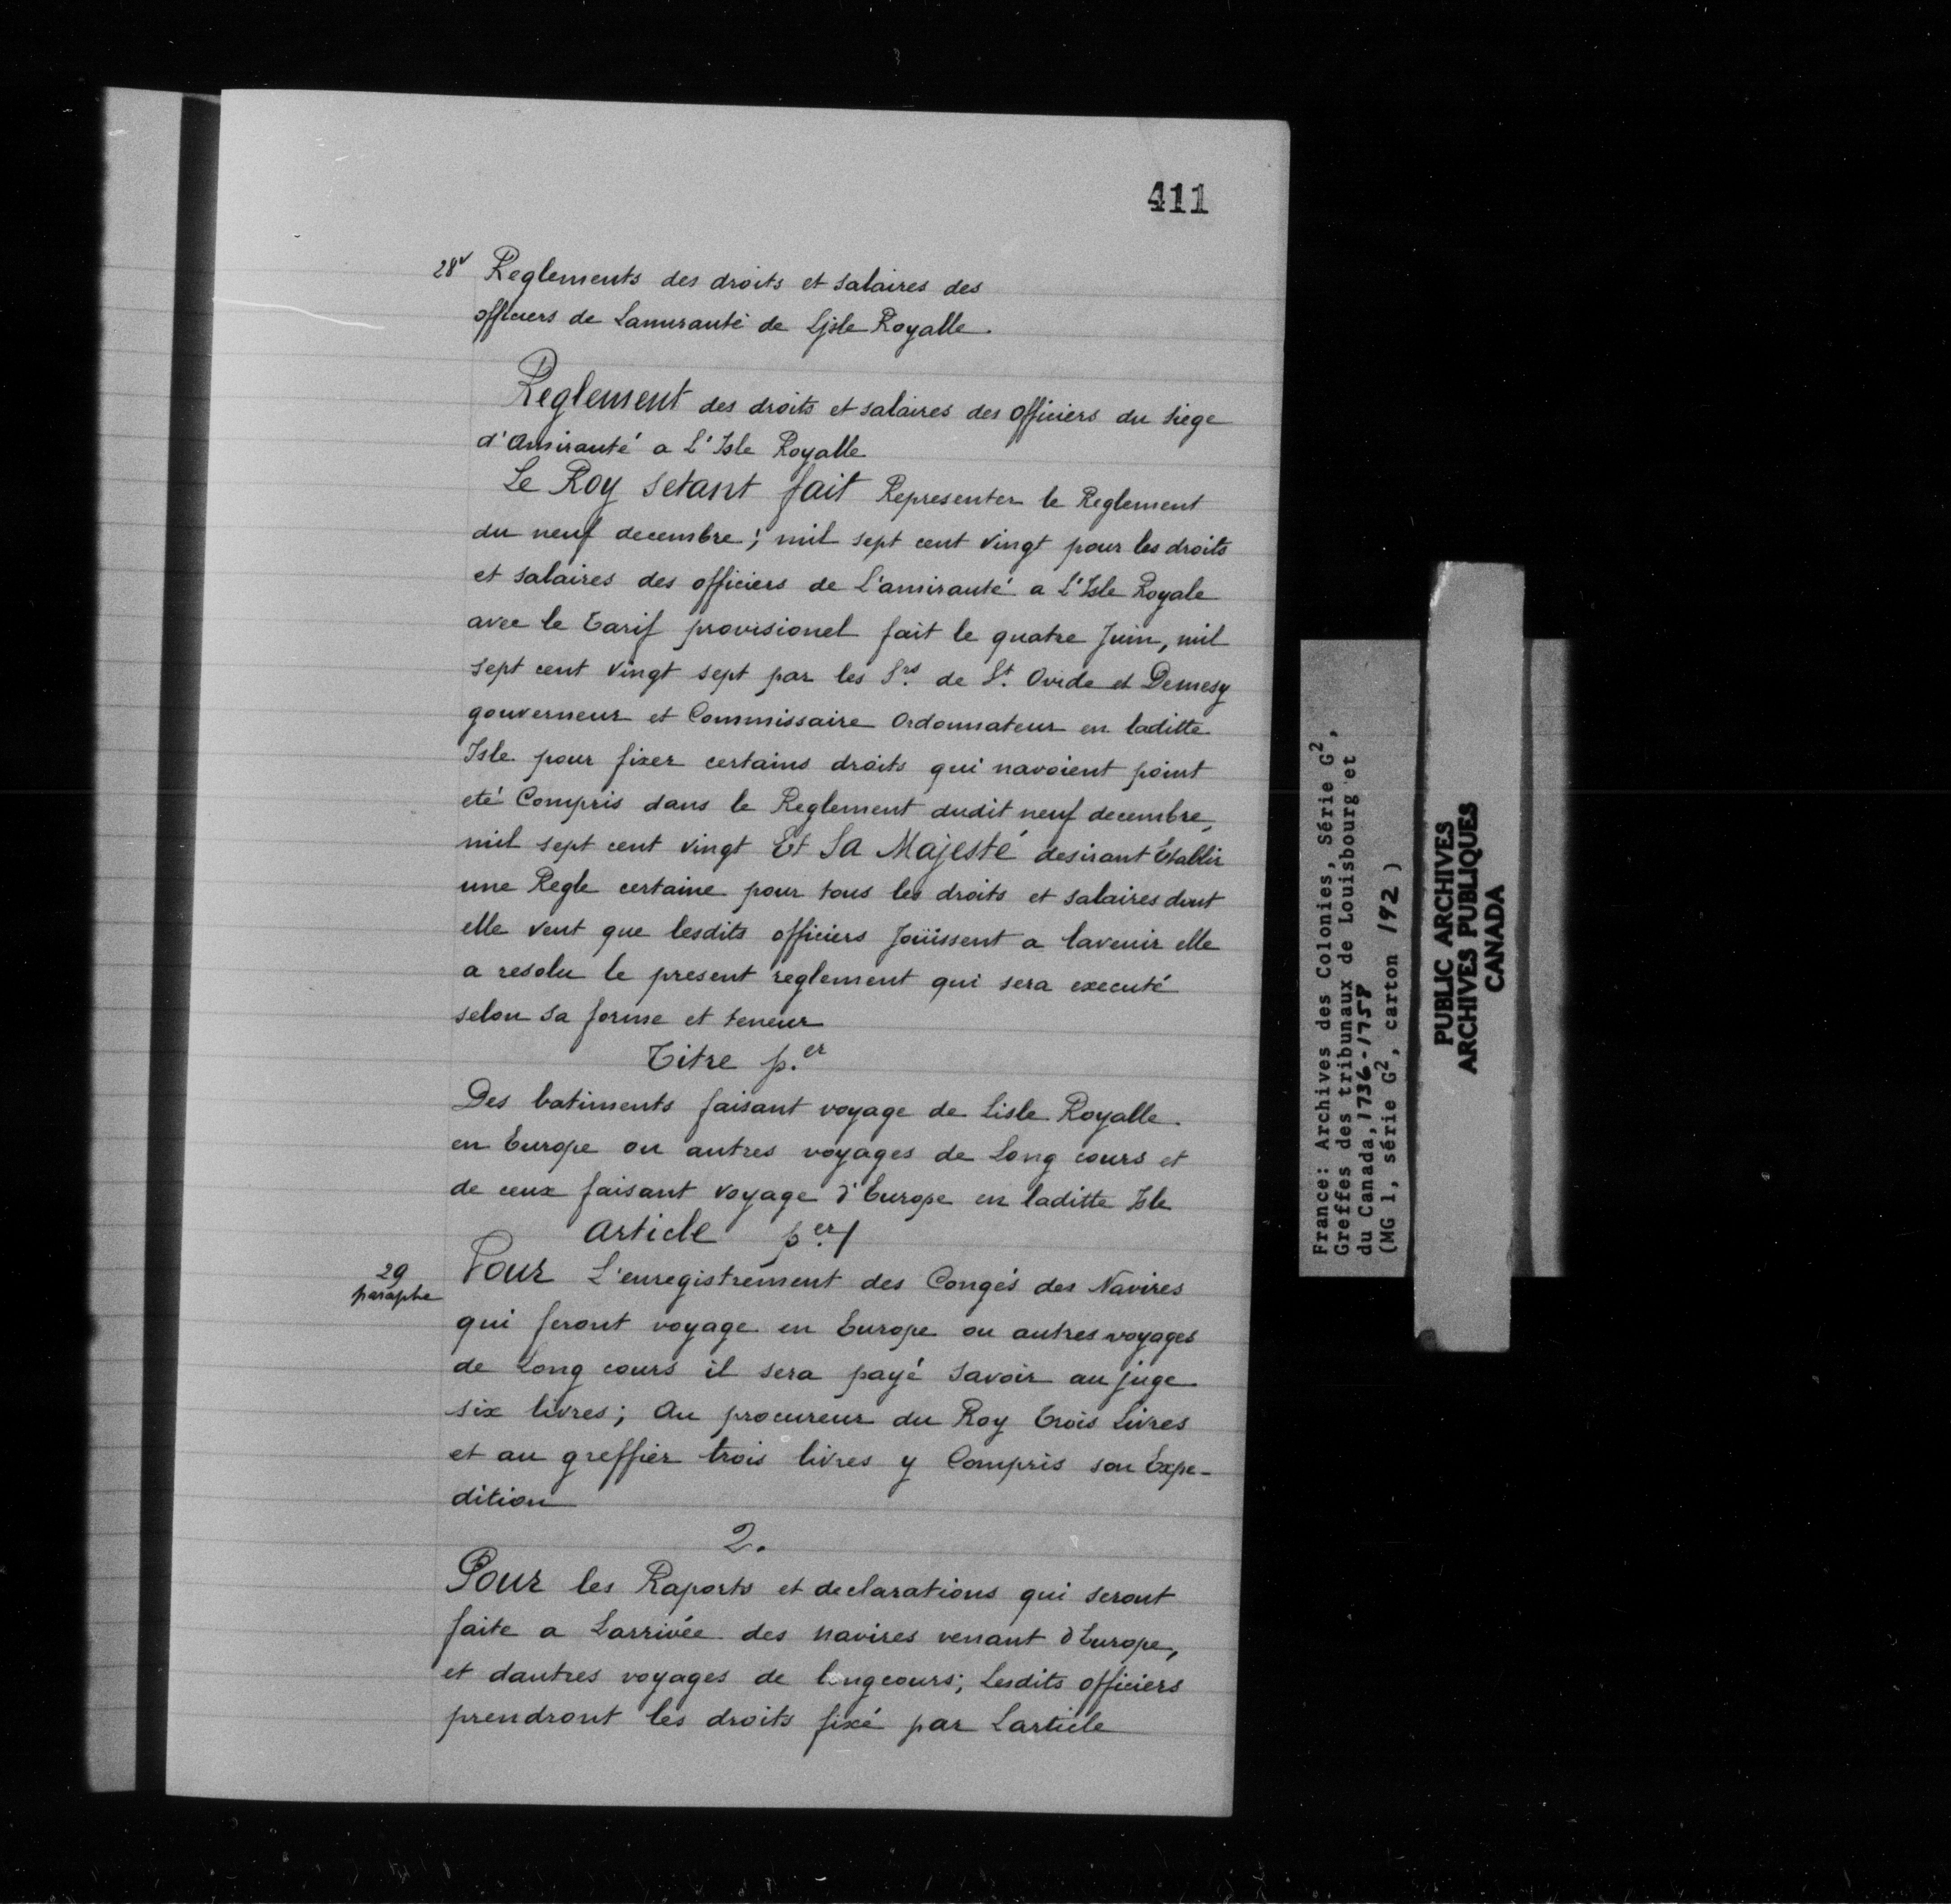 411
28v Reglements des droits et salaires des
officiers de Lamirauté de Lisle Royalle.
Reglement des droits et salaires des officiers du siege
d'amirauté a L'Isle Royalle
Le Roy setant fait Representer le Reglement
du neuf decembre; mil sept cent vingt pour les droits
et salaires des officiers de L'amirauté a L'Isle Royale
avec le tarif provisionel fait le quatre Juin, mil
sept cent vingt sept par les Srs. de St. Ovide et Demesy
gouverneur et Commissaire Ordonnateur en laditte
Isle pour fixer certains droits qui navoient point
eté Compris dans le Reglement dudit neuf decembre,
mil sept cent vingt Et Sa Majesté desirant Etablir
une Regle certaine pour tous les droits et salaires dont
elle veut que lesdits officiers Joüissent a lavenir elle
a resolu le present reglement qui sera executé
selon sa forme et teneur
Titre p.er
Des batiments faisant voyage de Lisle Royalle.
en Europe ou autres voyages de Long cours et
de ceux faisant voyage d'Europe en laditte Isle
Article p.er /
29
paraphe
Pour L'enregistrement des Congés des Navires
qui feront voyage en Europe ou autres voyages
de Long cours il sera payé savoir au juge
six livres; Au procureur du Roy trois Livres
et au greffier trois livres y Compris son Expe-
dition
2.
Pour les Raports et declarations qui seront
faite a Larrivée des navires venant d'Europe,
et dautres voyages de longcours; Lesdits officiers
prendront les droits fixé par Larticle
France: Archives des Colonies, Série G2,
Greffes des tribunaux de Louisbourg et
du Canada, 1736-1758
(MG 1, série G2, carton 192)
PUBLIC ARCHIVES
ARCHIVES PUBLIQUES
CANADA